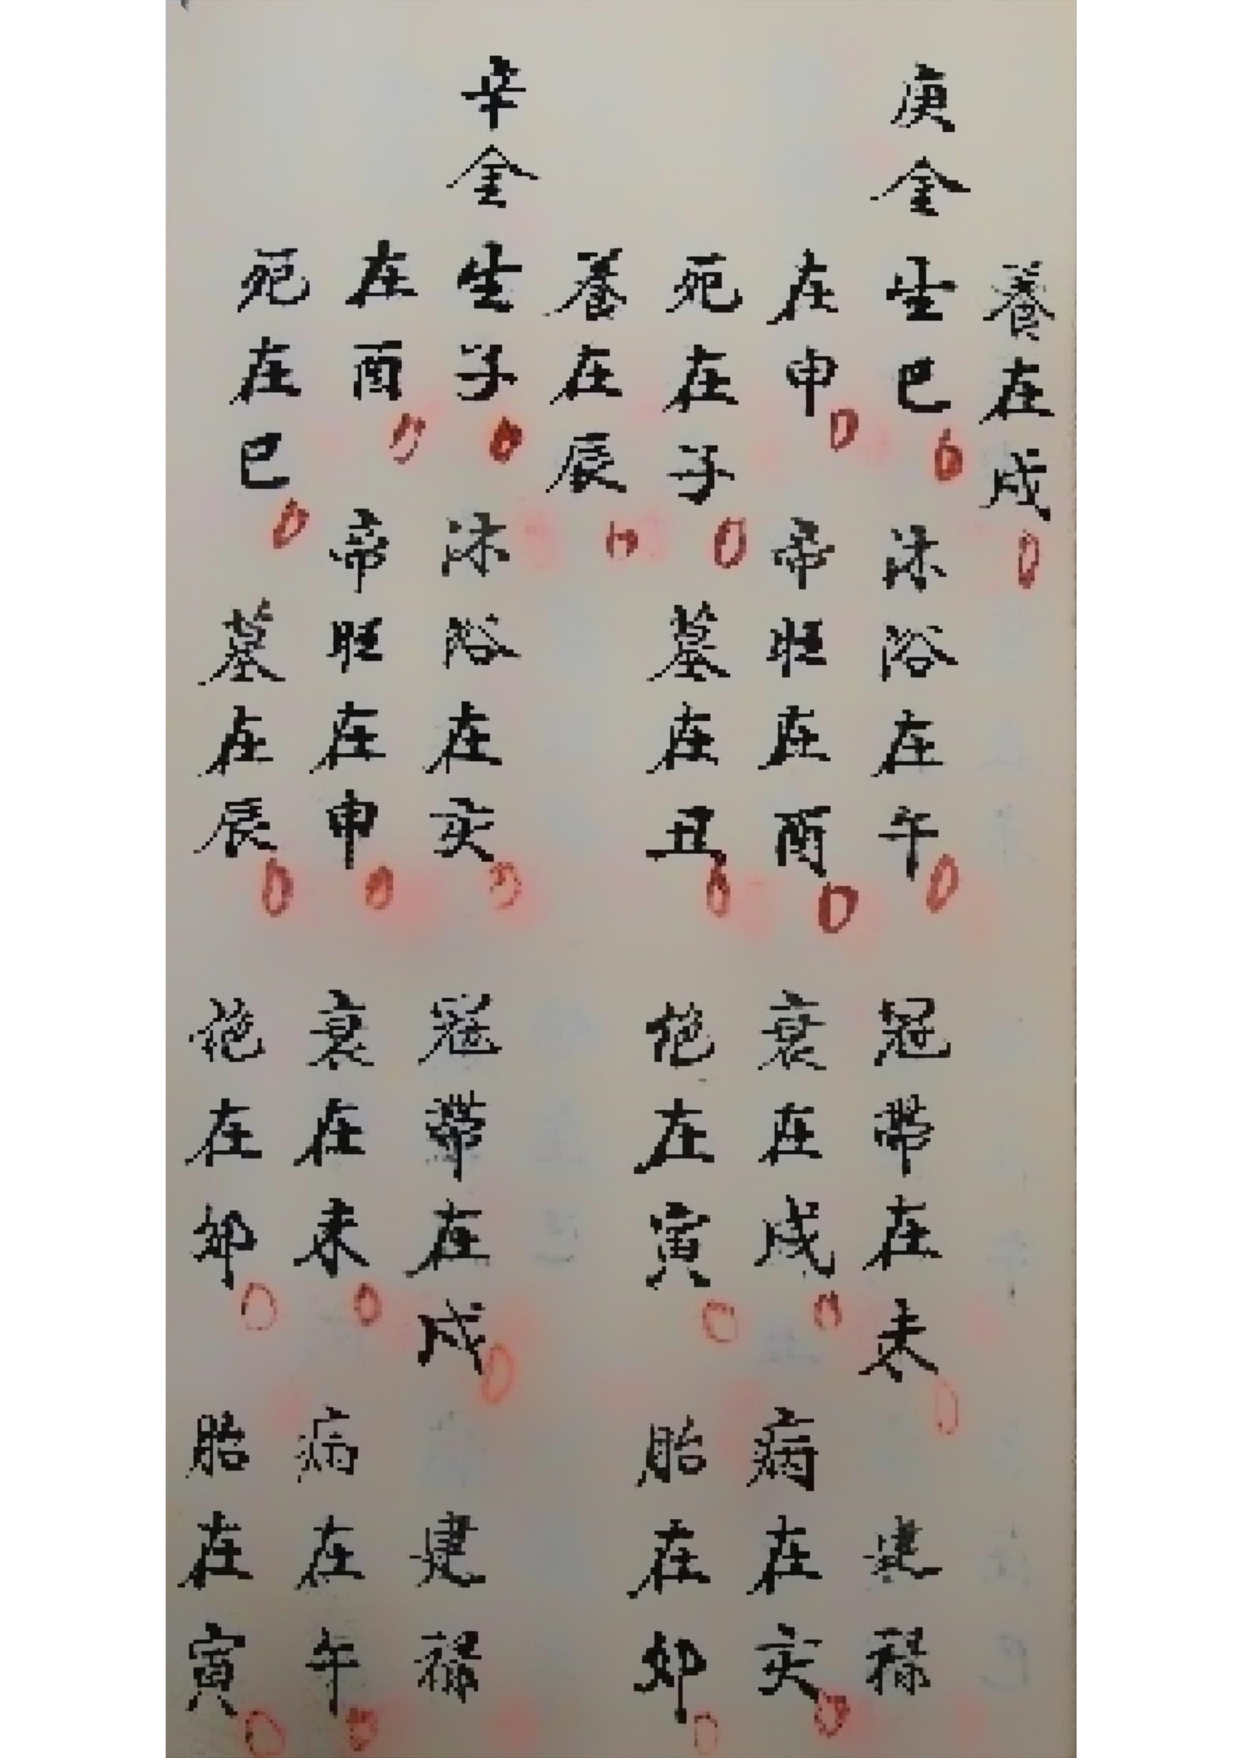 養在戌
庚金生巳 沐浴在午 冠帶在未 建祿
在申 帝旺在酉 衰在戌 病在亥
死在子 墓在丑 絕在寅 胎在卯
養在辰
辛金生子 沐浴在亥 冠帶在戌 建祿
在酉 帝旺在申 衰在未 病在午
死在巳 墓在辰 絕在卯 胎在寅